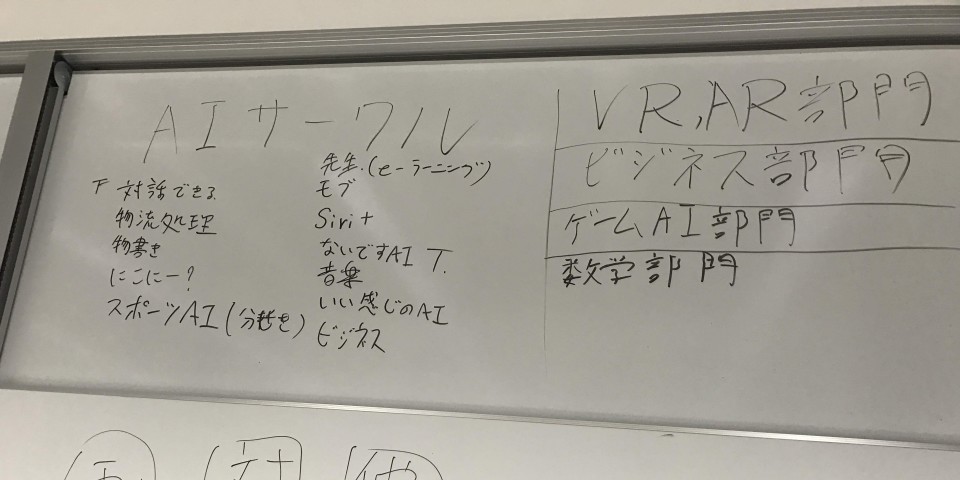 AIサークル
対話できる
物流処理
物書き
にこにー?
スポーツAI(分析を)
先生.(eーラーニング)
モブ
Siri+
ないですAI T.
音楽
いい感じのAI
ビジネス
VR,AR部門
ビジネス部門
ゲームAI部門
数学部門